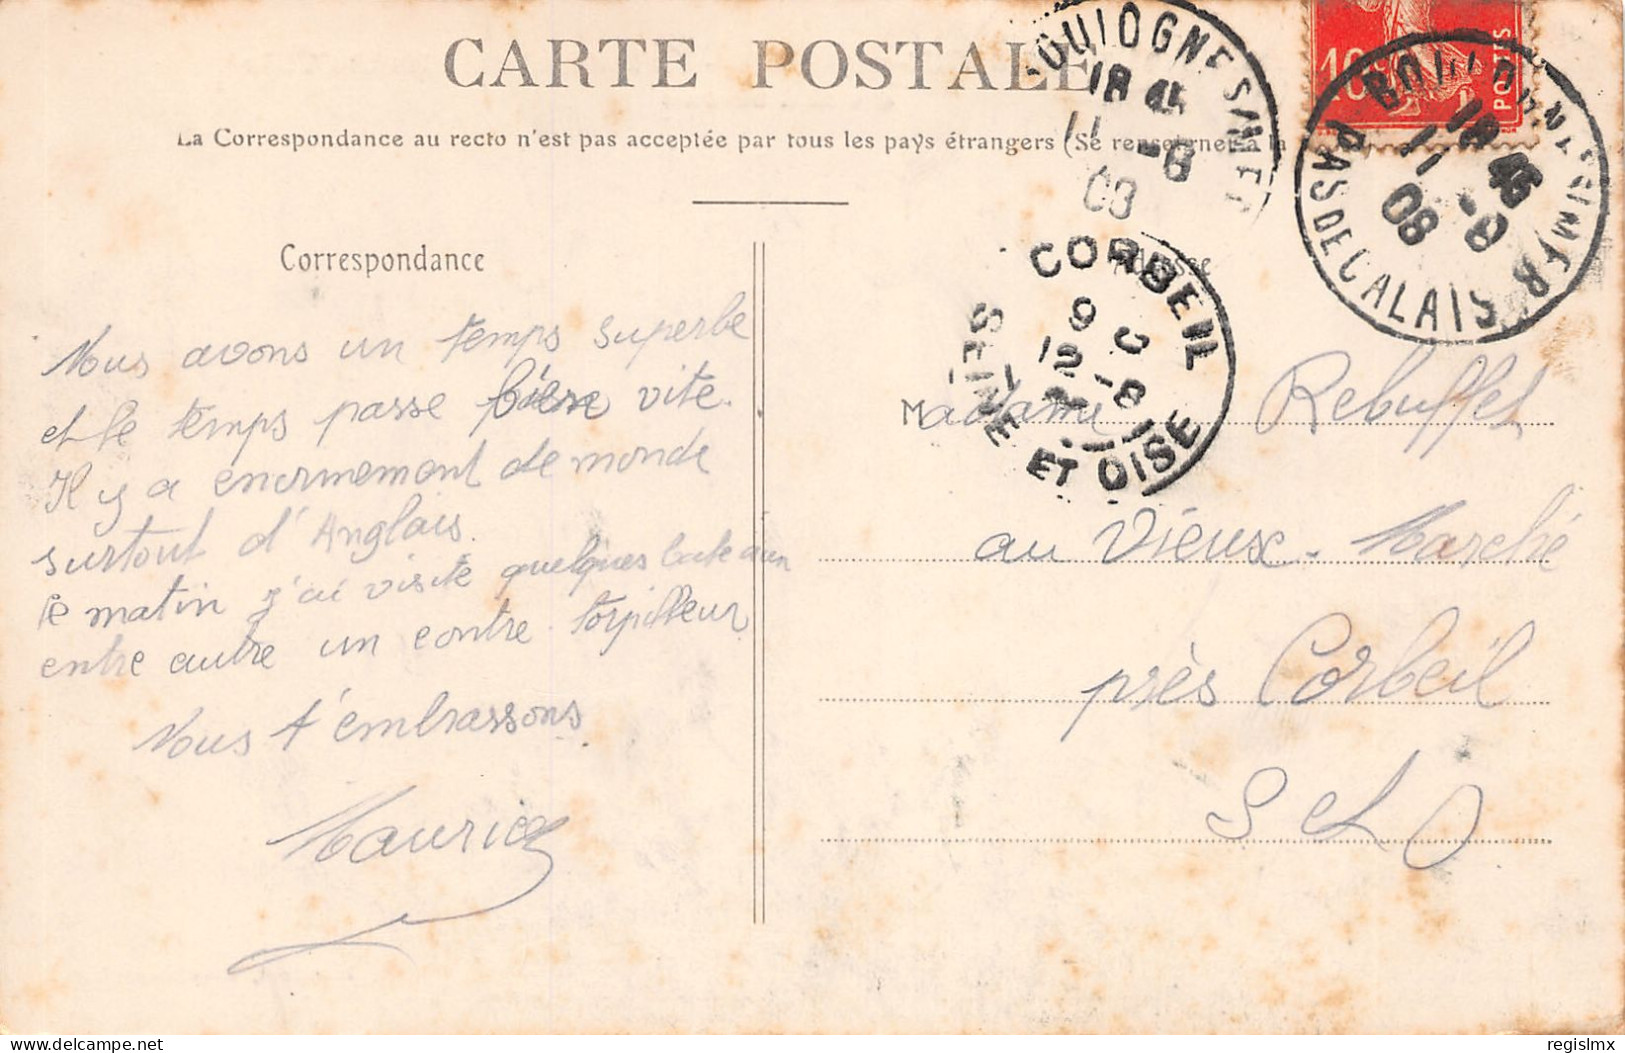 CARTE POSTALE
La Correspondance au recto n'est pas acceptée par tous les pays étrangers (Se renseigner à la
Correspondance
Nous avons un temps superbe
et le temps passe bien vite.
Il y a enormement de monde
surtout d'Anglais.
le matin j'ai visité quelques bateaux
entre autre un contre-torpilleur
Nous t'embrassons
Maurice
BOULOGNE S MER
18 45
11 -8
08
BOULOGNE S MER
PAS DE CALAIS
18 45
11 -8
08
10c
POSTES
CORBEIL
SEINE ET OISE
9
12 -8
Madame Rebuffet
au Vieux-Marché
près Corbeil
S et O
Delcampe.net
regislmx